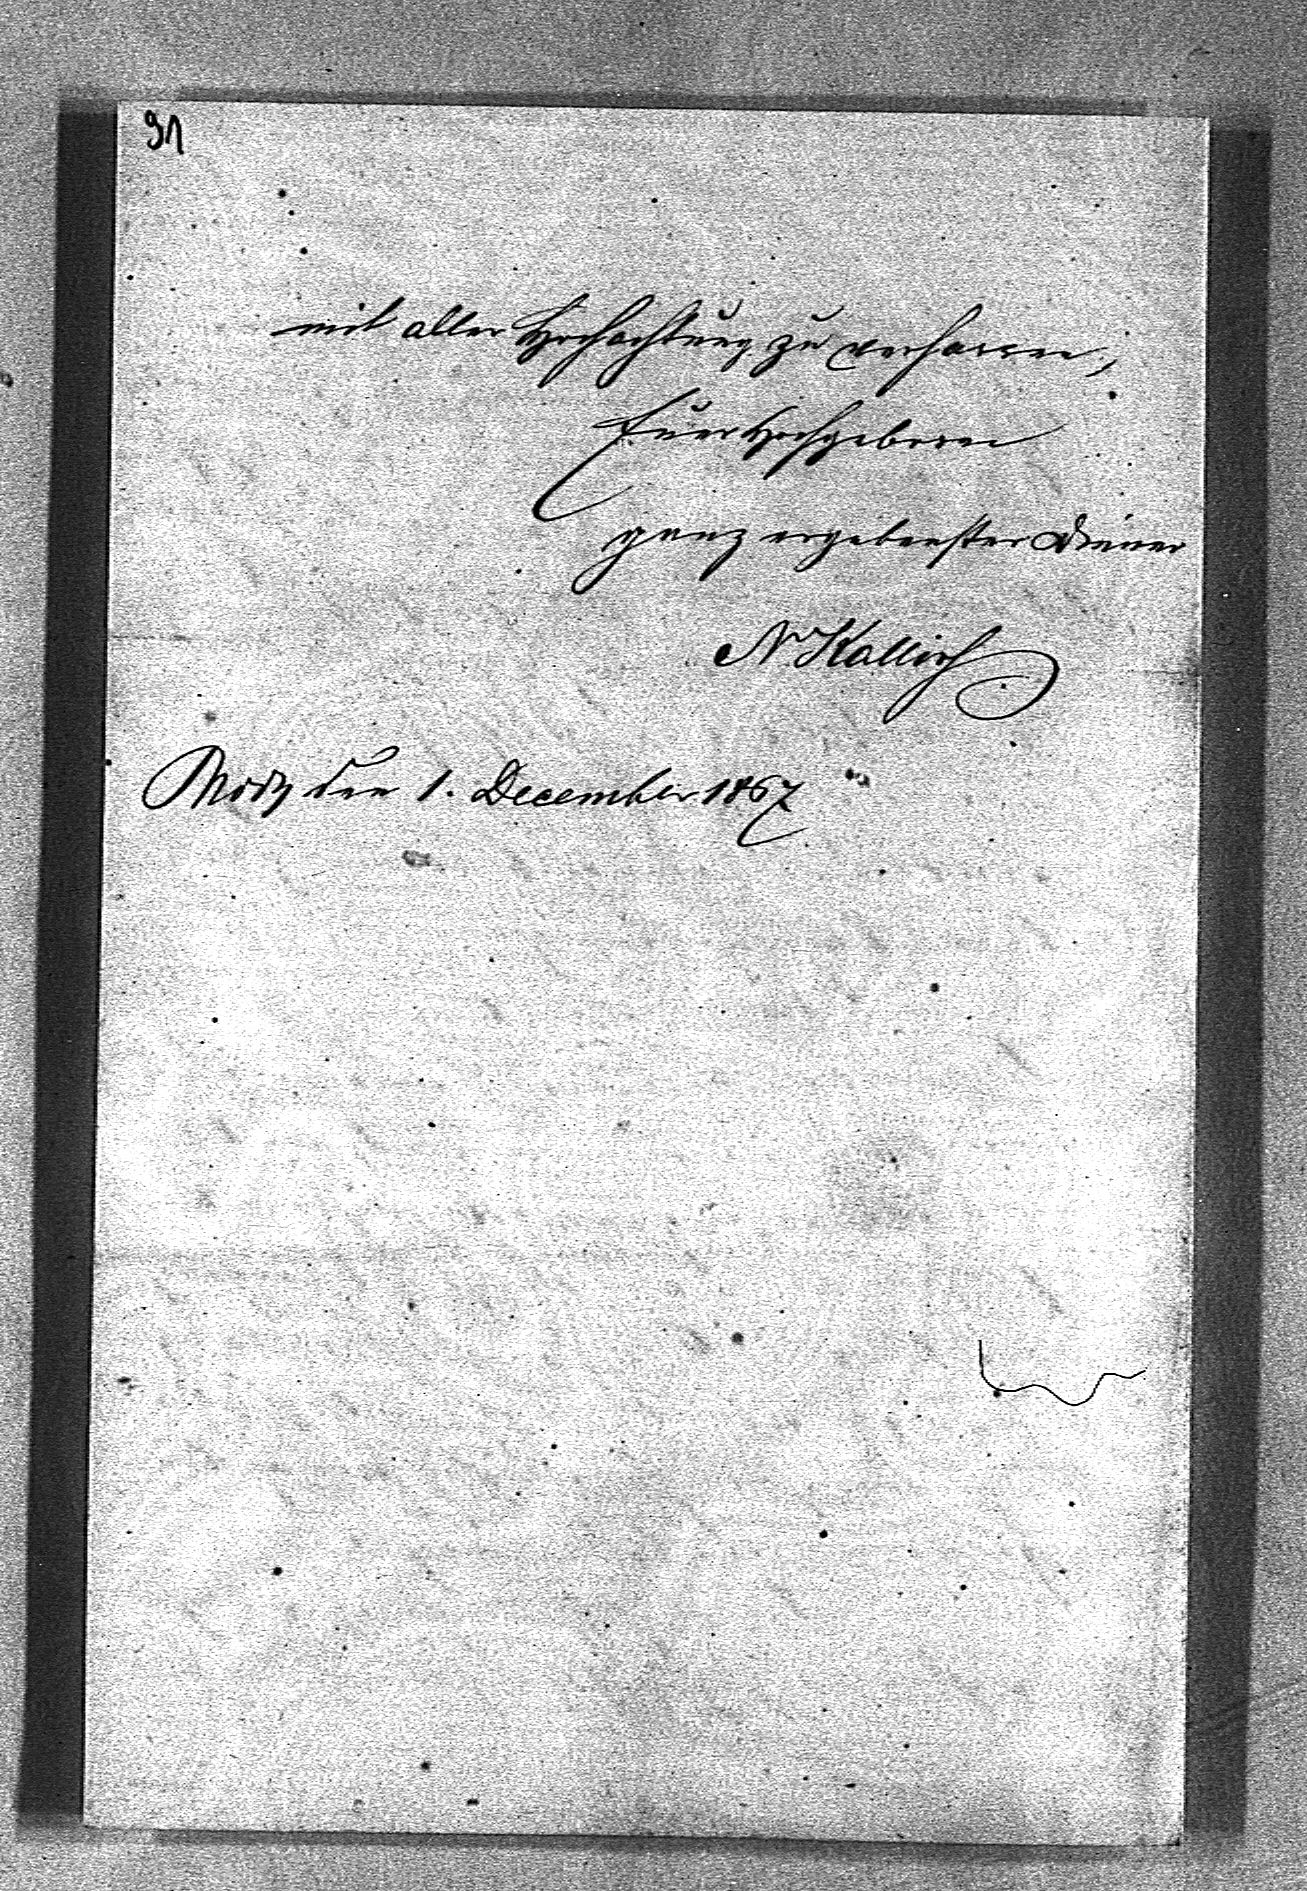 91
mit aller Hochachtung zu verharren,
Euer Hochgeboren
ganz ergebenster Diener
N Kallich
den 1. December 1867